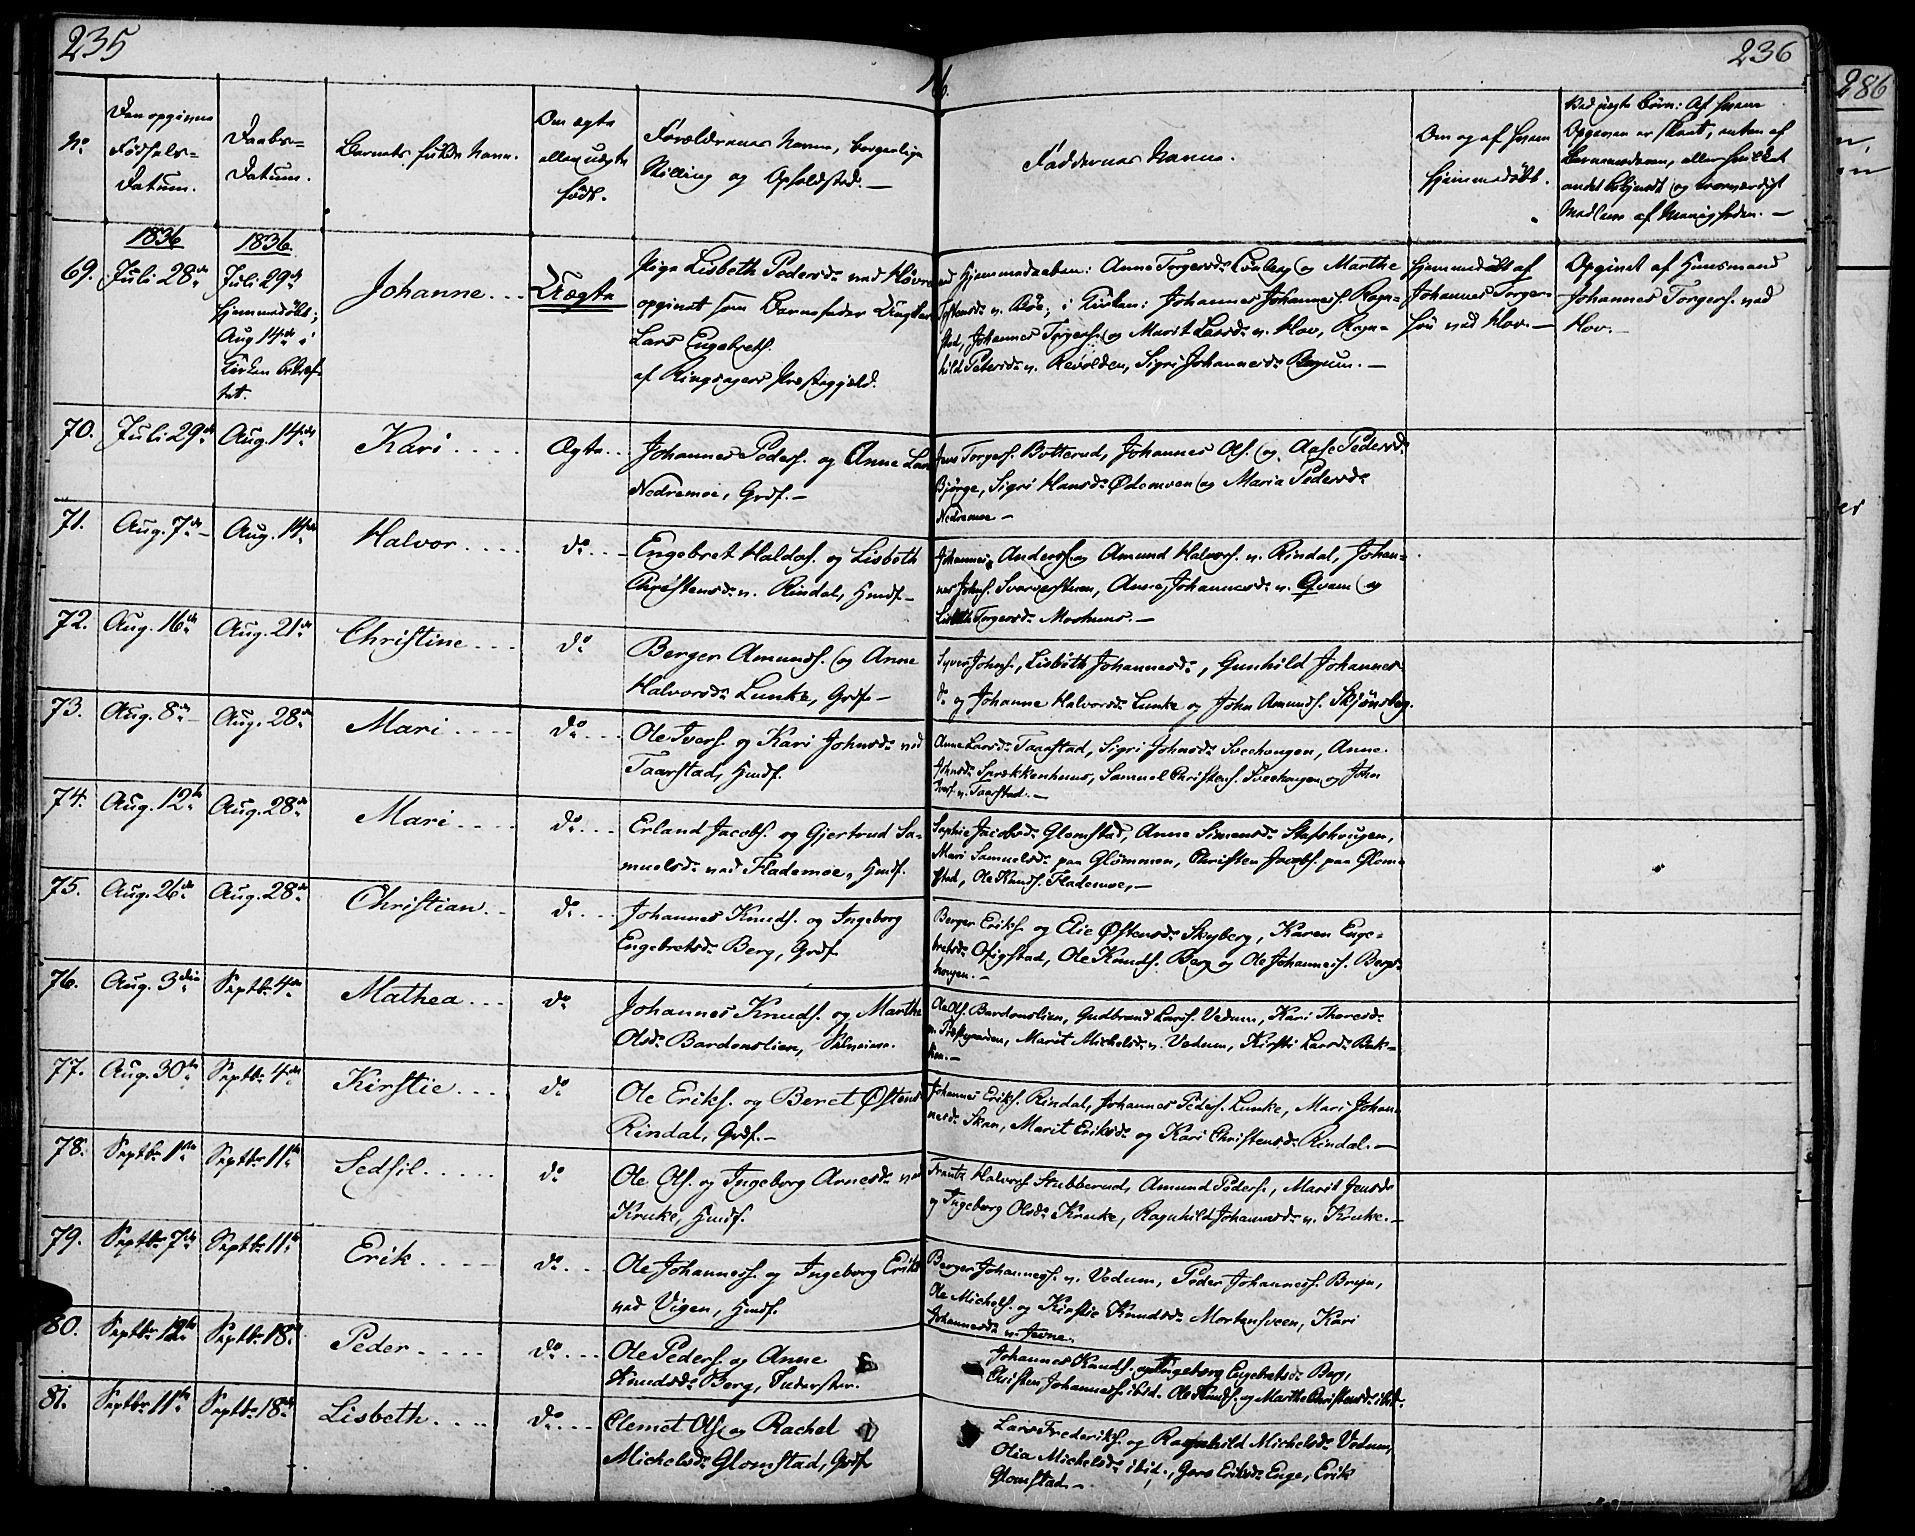 235
236
286
16.
No
Den opgivne
Fødsels-
Datum.
Daabs-
Datum.
Barnets fulde Navn.
Om ægte
eller uægte
født.
Forældrenes Navne, borgerlige
Stilling og Opholdsted.—
Faddernes Navne.
Om og af hvem
hjemmedøbt.
Ved uægte Børn: Af hvem
Opgaven er skeet, enten af
Barnemoderen, eller hvilket
andet bekjendt og troværdigt
Medlem af Menigheden.—
1836
1836.
69.
Juli 28de
Juli 29de
hjemmedøbt;
Aug 14de i
Kirken bekræf-
tet.
Johanne...
Uægte
Pige Lisbeth Pedersdr ved Hov
opgivet som Barnefader Ungkar
Lars Engebrets.
af Ringsagers Præstegjæld.
ved Hjemmedaaben: Anne Torgersdr Lunberg og Marthe
i Kirken: Johannes Johanness. Rogn-
stad, Johannes Torgers. og Marit Larsdr v. Hov, Ragn-
hild Petersdr v. Revolden, Sigri Johannesdr Brynum.—
Hjemmedøbt af
Johannes Torger-
søn ved Hov.—
Opgivet af Huusmand
Johannes Torgers. ved
Hov.—
70.
Juli 29de
Aug. 14de
Kari....
Ægte..
Johannes Peders. og Anne Lars
Nedremoe, Grdf.—
Jens Torgers. Botterud, Johannes Ols. og Aase Pedersdr
Bjørge, Sigri Hansdr Ødemoen og Maria Pedersdr
Nedremoe—
71.
Aug. 7de—
Aug. 14de
Halvor....
do...
Engebret Haldos. og Lisbeth
Christensdr v. Rindal, Hmdf.—
Johannes Anders. og Amund Halvors. v. Rindal, Johan-
nes Johns. Svarverstuen, Anne Johannesdr v. Qvam og
Lisbeth Torgersdr Moshuus.—
72.
Aug. 16de
Aug. 21de
Christine...
do
Berger Amunds. og Anne
Halvorsdr Lunke, Grdf—
Syver Johns., Lisbeth Johannesdr, Gunhild Johannes
dr og Johanne Halvorsdr Lunke og John Amunds. Skjønsberg.
73.
Aug. 8de—
Aug. 28de
Mari....
do...
Ole Ivers. og Kari Johnsdr ved
Taarstad, Hmdf.
Anne Larsdr Taarstad, Sigri Johnsdr Sveehougen, Anne
Johnsdr Sprækkenhuus, Samuel Christens. Sveehougen og John
Ivers. v. Taarstad.—
74.
Aug. 12te
Aug. 28de
Mari....
do...
Erland Jacobs. og Gjertrud Sa-
muelsdr ved Flademoe, Hmdf.
Sophie Jacobsdr Glomstad, Anne Simensdr Stafshougen,
Mari Samuelsdr paa Glømmen, Christen Jacobs. paa Glom-
stad, Ole Knuds. Flademoe.—
75.
Aug. 26de
Aug. 28de
Christian..
do...
Johannes Knuds. og Ingeborg
Engebretsdr Berg, Grdf.
Berger Eriks. og Elie Østensdr Skyberg, Karen Enge-
bretsdr Ofigstad, Ole Knuds. Berg og Ole Johanness. Bergs-
hougen.—
76.
Aug. 3die
Septbr 4de
Mathea...
do
Johannes Knuds. og Marthe
Olsdr Bardonslien,
Ole Ols. Bardonslien, Gudbrand Lars. Vedum, Kari Thoresdr
v. Præstgarden, Marit Michelsdr v. Vedum, Kirsti Larsdr Bak-
ken.—
77.
Aug. 30te
Septbr 4de
Kirstie...
do
Ole Eriks. og Beret Østens
Rindal, Grdf.—
Johannes Eriks. Rindal, Johannes Peders. Lunke, Mari Johan-
nesdr Skar, Marit Eriksdr og Kari Christensdr Rindal.—
78.
Septbr 1ste
Septbr 11te
Sedsil.....
do
Ole Ols. og Ingeborg Arnesdr ved
Kruke, Hmdf.
Frantz Halvors. Stubberud, Amund Peders., Marit Jensdr
og Ingeborg Olsdr Kruke, Ragnhild Johannesdr v. Kruke.—
79.
Septbr 7de
Septbr 11te
Erik....
do...
Ole Johanness. og Ingeborg Eriks
ved Vigen, Hmdf.
Berger Johanness. v. Vedum, Peder Johanness. Bryn,
Ole Michels. og Kirstie Knudsdr Mortensveen, Kari
Johannesdr v. Jevne.
80.
Septbr 12te
Septbr 18de
Peder....
do...
Ole Peders. og Anne
Knudsdr Berg, Inderster.
Johannes Knuds. og Ingeborg Engebretsdr Berg,
Christen Johanness. ibid. Ole Knuds. og Marthe Christensdr ibid.
81.
Septbr 11te
Septbr 18de
Lisbeth....
do...
Clemet Ols. og Rachel
Michelsdr Glomstad, Grdf
Lars Frederiks. og Ragnhild Michelsdr Vedum,
Olia Michelsdr ibid., Gors Eriksdr Enge, Erik
Glomstad.—